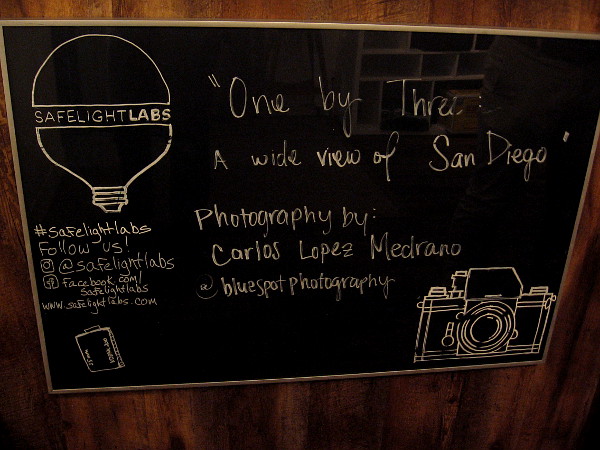 SAFELIGHTLABS
#safelightlabs
Follow us!
@safelightlabs
facebook.com/
safelightlabs
www.safelightlabs.com
"One by Three:
A wide view of San Diego"
Photography by:
Carlos Lopez Medrano
@bluespotphotography